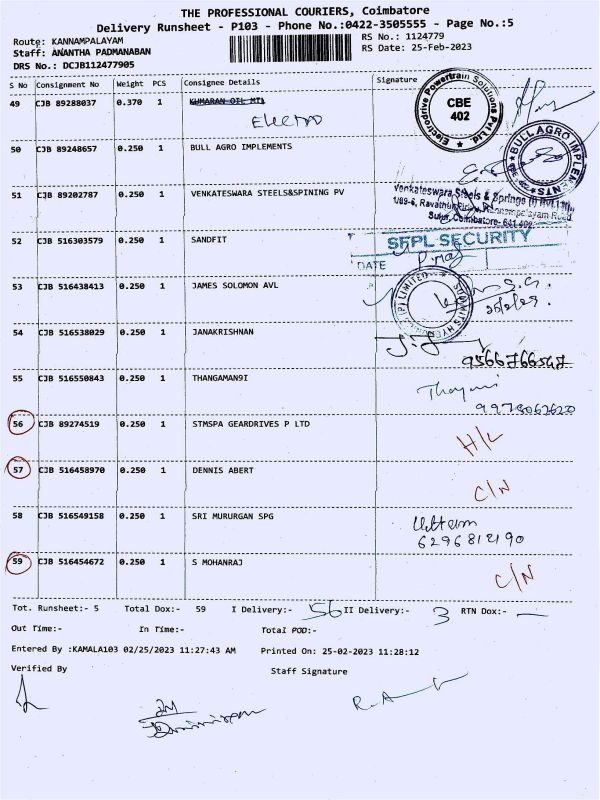 THE PROFESSIONAL COURIERS, Coimbatore
Delivery Runsheet - P103 - Phone No.:0422-3505555 - Page No.:5
Route: KANNAMPALAYAM
RS No.: 1124779
Staff: ANANTHA PADMANABAN
RS Date: 25-Feb-2023
DRS No.: DCJB112477905
S No Consignment No Weight PCS Consignee Details Signature
49 CJB 89288037 0.370 1 KUMARAN OIL MIL
Electro
Electrodrive Powertrain Solutions Pvt Ltd
CBE
402
50 CJB 89248657 0.250 1 BULL AGRO IMPLEMENTS
BULL AGRO IMPLEMENTS
CBE 402
51 CJB 89202787 0.250 1 VENKATESWARA STEELS&SPINING PV
Venkateswara Steels & Springs (I) Pvt Ltd.,
Sulur, Coimbatore- 641 402
52 CJB 516303579 0.250 1 SANDFIT
SFPL SECURITY
DATE
53 CJB 516438413 0.250 1 JAMES SOLOMON AVL
(P) LIMITED
54 CJB 516538029 0.250 1 JANAKRISHNAN
9566766547
55 CJB 516550843 0.250 1 THANGAMAN9I
56 CJB 89274519 0.250 1 STMSPA GEARDRIVES P LTD
H/L
57 CJB 516458970 0.250 1 DENNIS ABERT
C/N
58 CJB 516549158 0.250 1 SRI MURURGAN SPG
Uttam
6296812190
59 CJB 516454672 0.250 1 S MOHANRAJ
C/N
Tot. Runsheet:- 5 Total Dox:- 59 I Delivery:- 56 II Delivery:- 3 RTN Dox:- —
Out Time:- In Time:- Total POD:-
Entered By :KAMALA103 02/25/2023 11:27:43 AM Printed On: 25-02-2023 11:28:12
Verified By Staff Signature